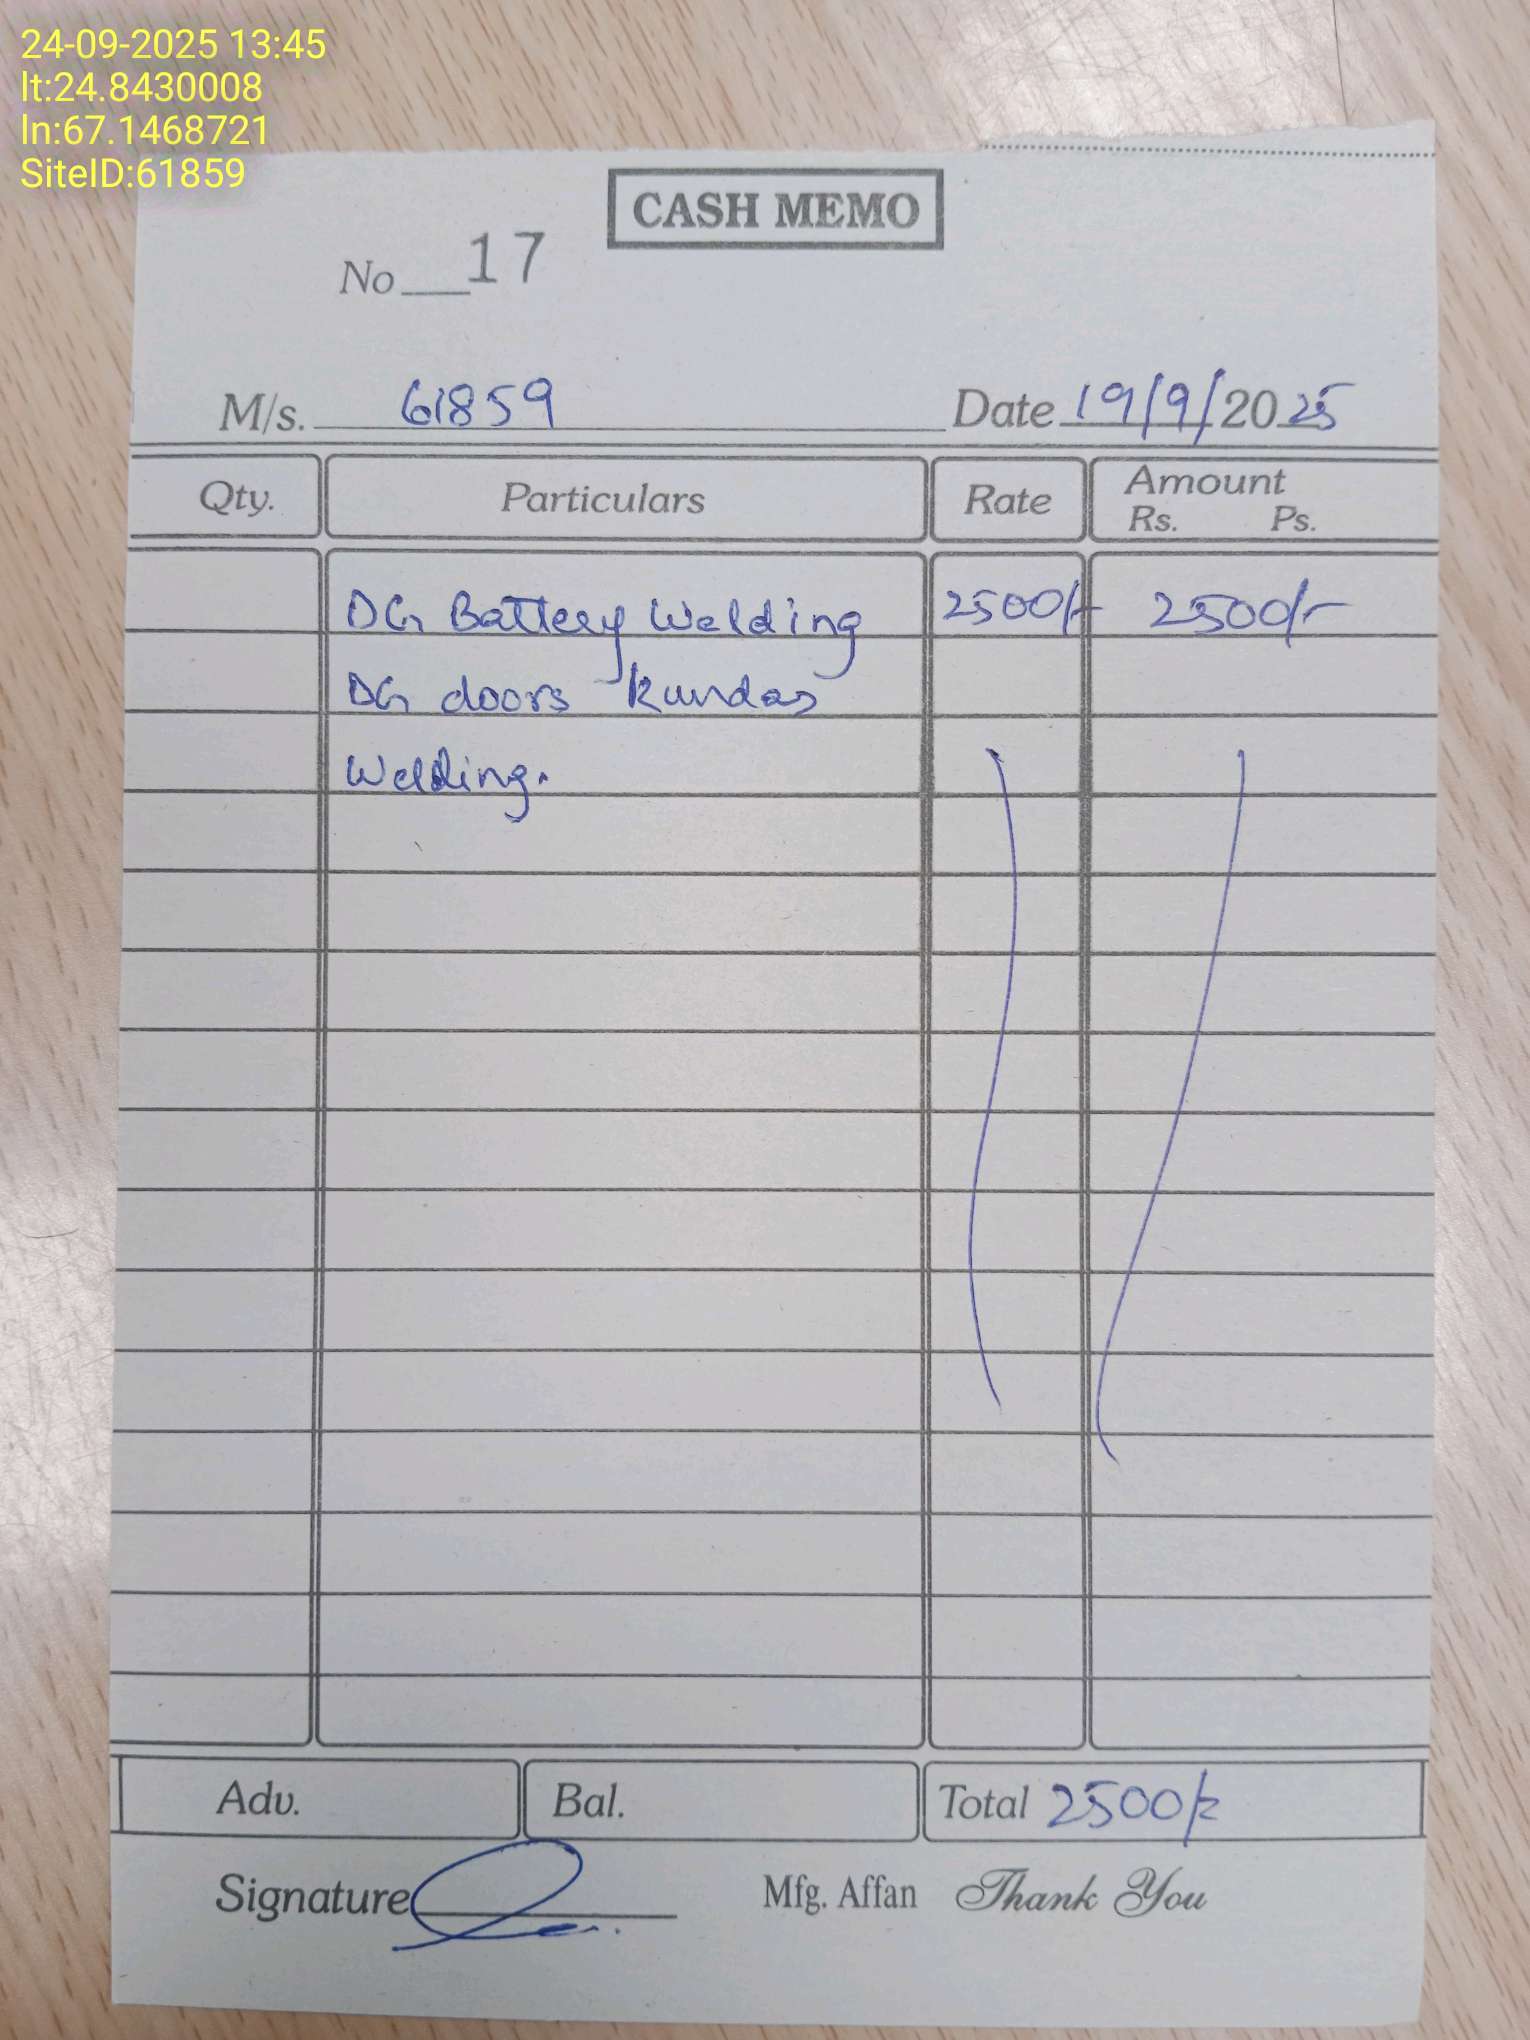 24-09-2025 13:45
lt:24.8430008
ln:67.1468721
SiteID:61859
CASH MEMO
No 17
M/s. 61859 Date 19/9/2025
Qty. Particulars Rate Amount
Rs. Ps.
DG Battery Welding 2500/- 2500/-
DG doors kundas
Welding.
Adv. Bal. Total 2500/=
Signature Mfg. Affan Thank You